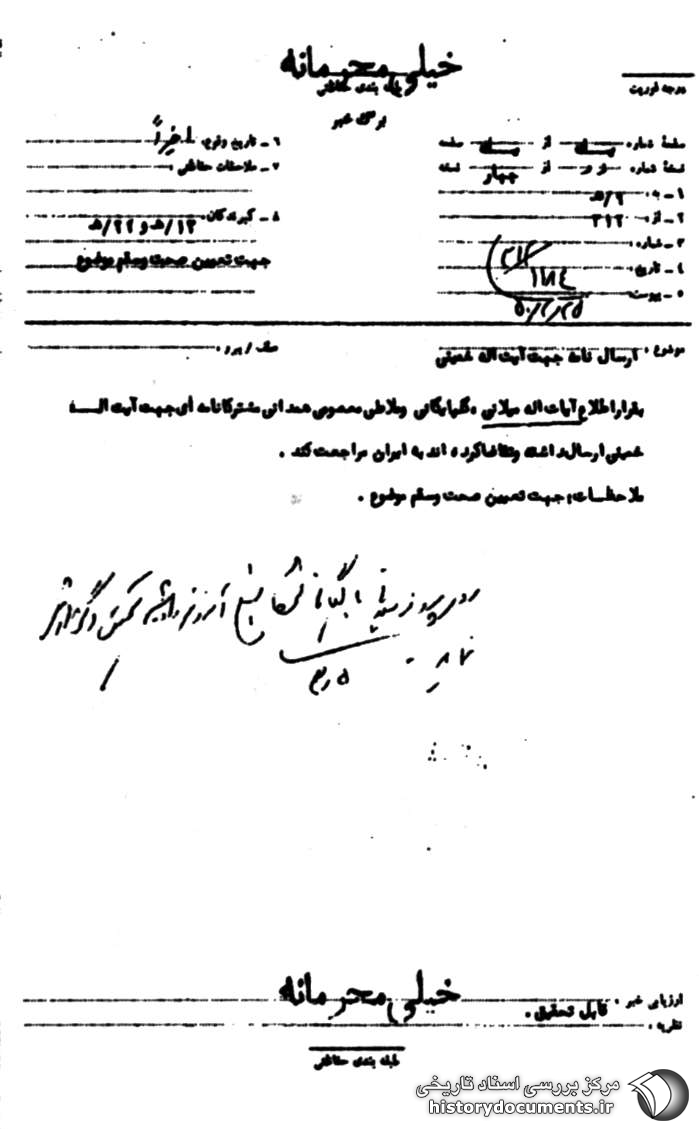 خیلی محرمانه
طبقه بندی حفاظتی
درجه فوریت
برگ خبر
صفحه شماره یک از یک صفحه
نسخه شماره دو از چهار نسخه
۱ - به ۹/ه‍
۲ - از ۳۱۲
۳ - شماره
۴ - تاریخ
۵ - پیوست
۶ - تاریخ وقوع اخیراً
۷ - ملاحظات حفاظتی
۸ - گیرندگان ۱۳/ه‍ و ۲۲/ه‍
جهت تعیین صحت وسقم موضوع
موضوع: ارسال نامه جهت آیت اله خمینی
بقرار اطلاع آیات اله میلانی ، گلپایگانی وملاعلی معصومی همدانی مشترکا نامه ای جهت آیت اله
خمینی ارسال داشته وتقاضا کرده اند به ایران مراجعت کند .
ملاحظات: جهت تعیین صحت وسقم موضوع .
خیلی محرمانه
ارزیابی خبر : قابل تحقیق .
نظریه :
طبقه بندی حفاظتی
مرکز بررسی اسناد تاریخی
historydocuments.ir